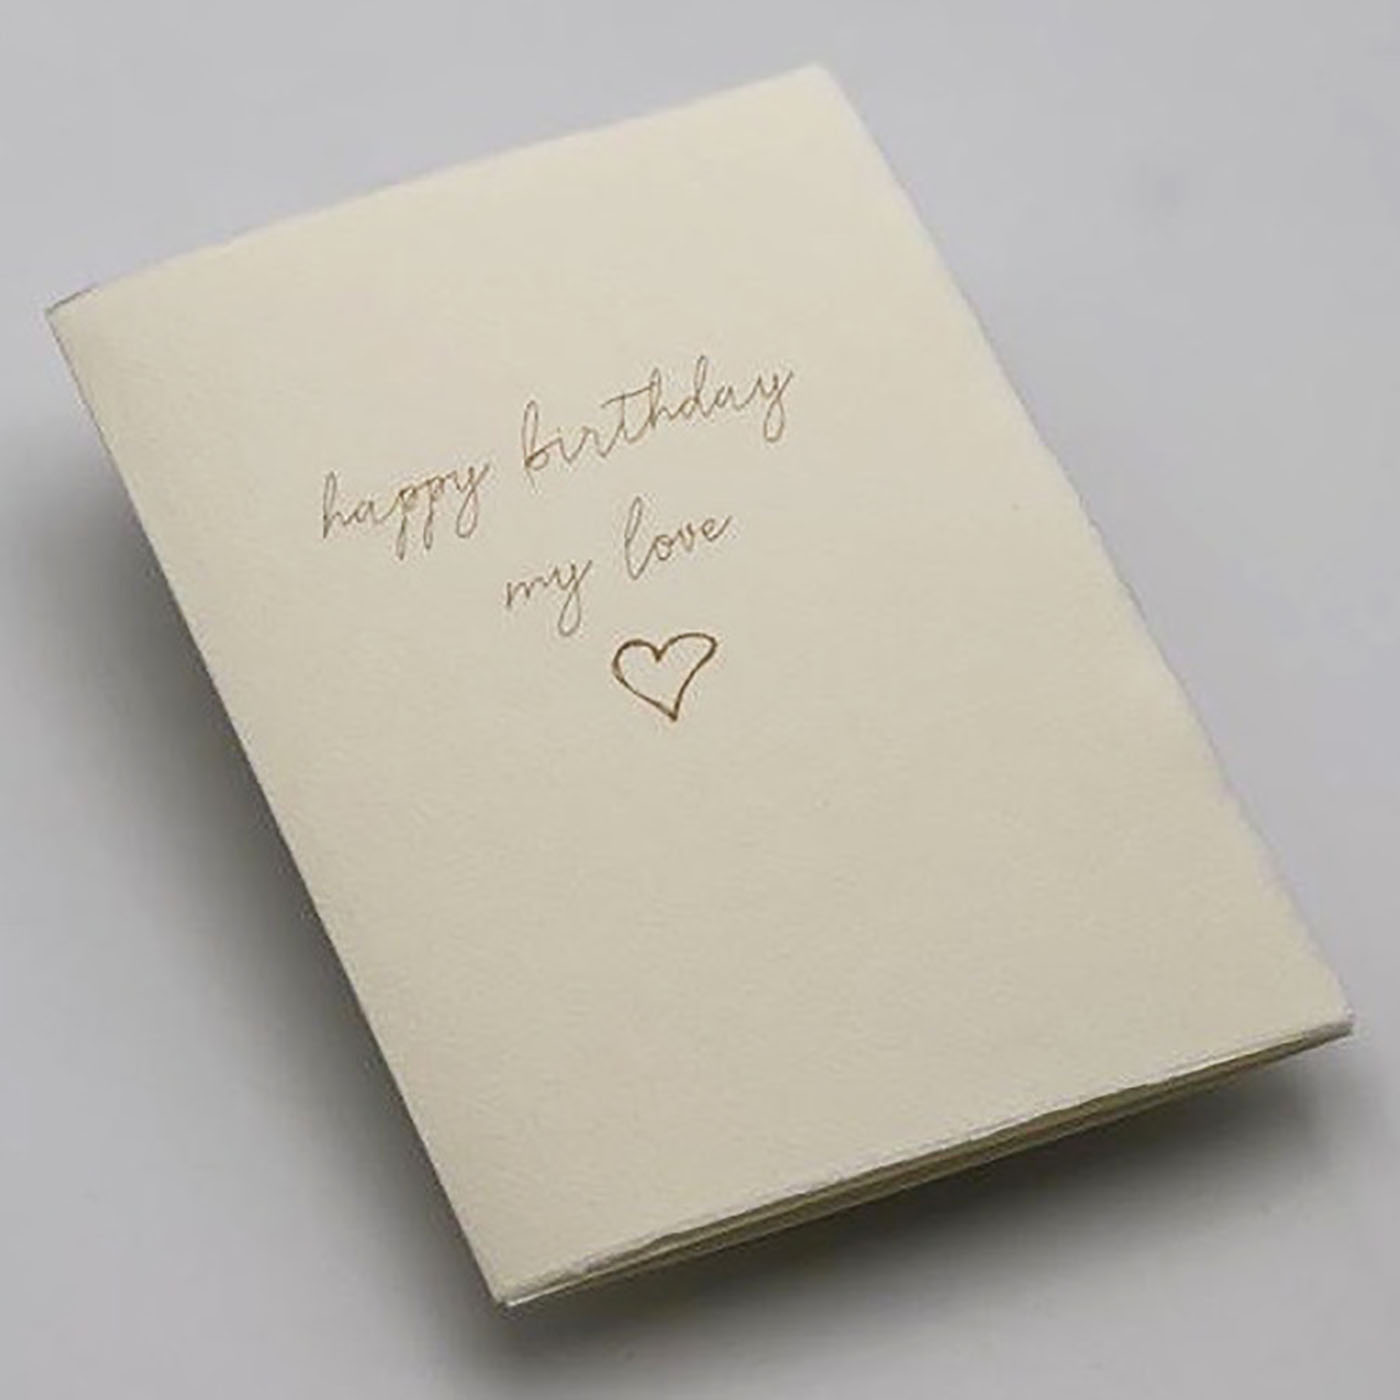 happy birthday
my love